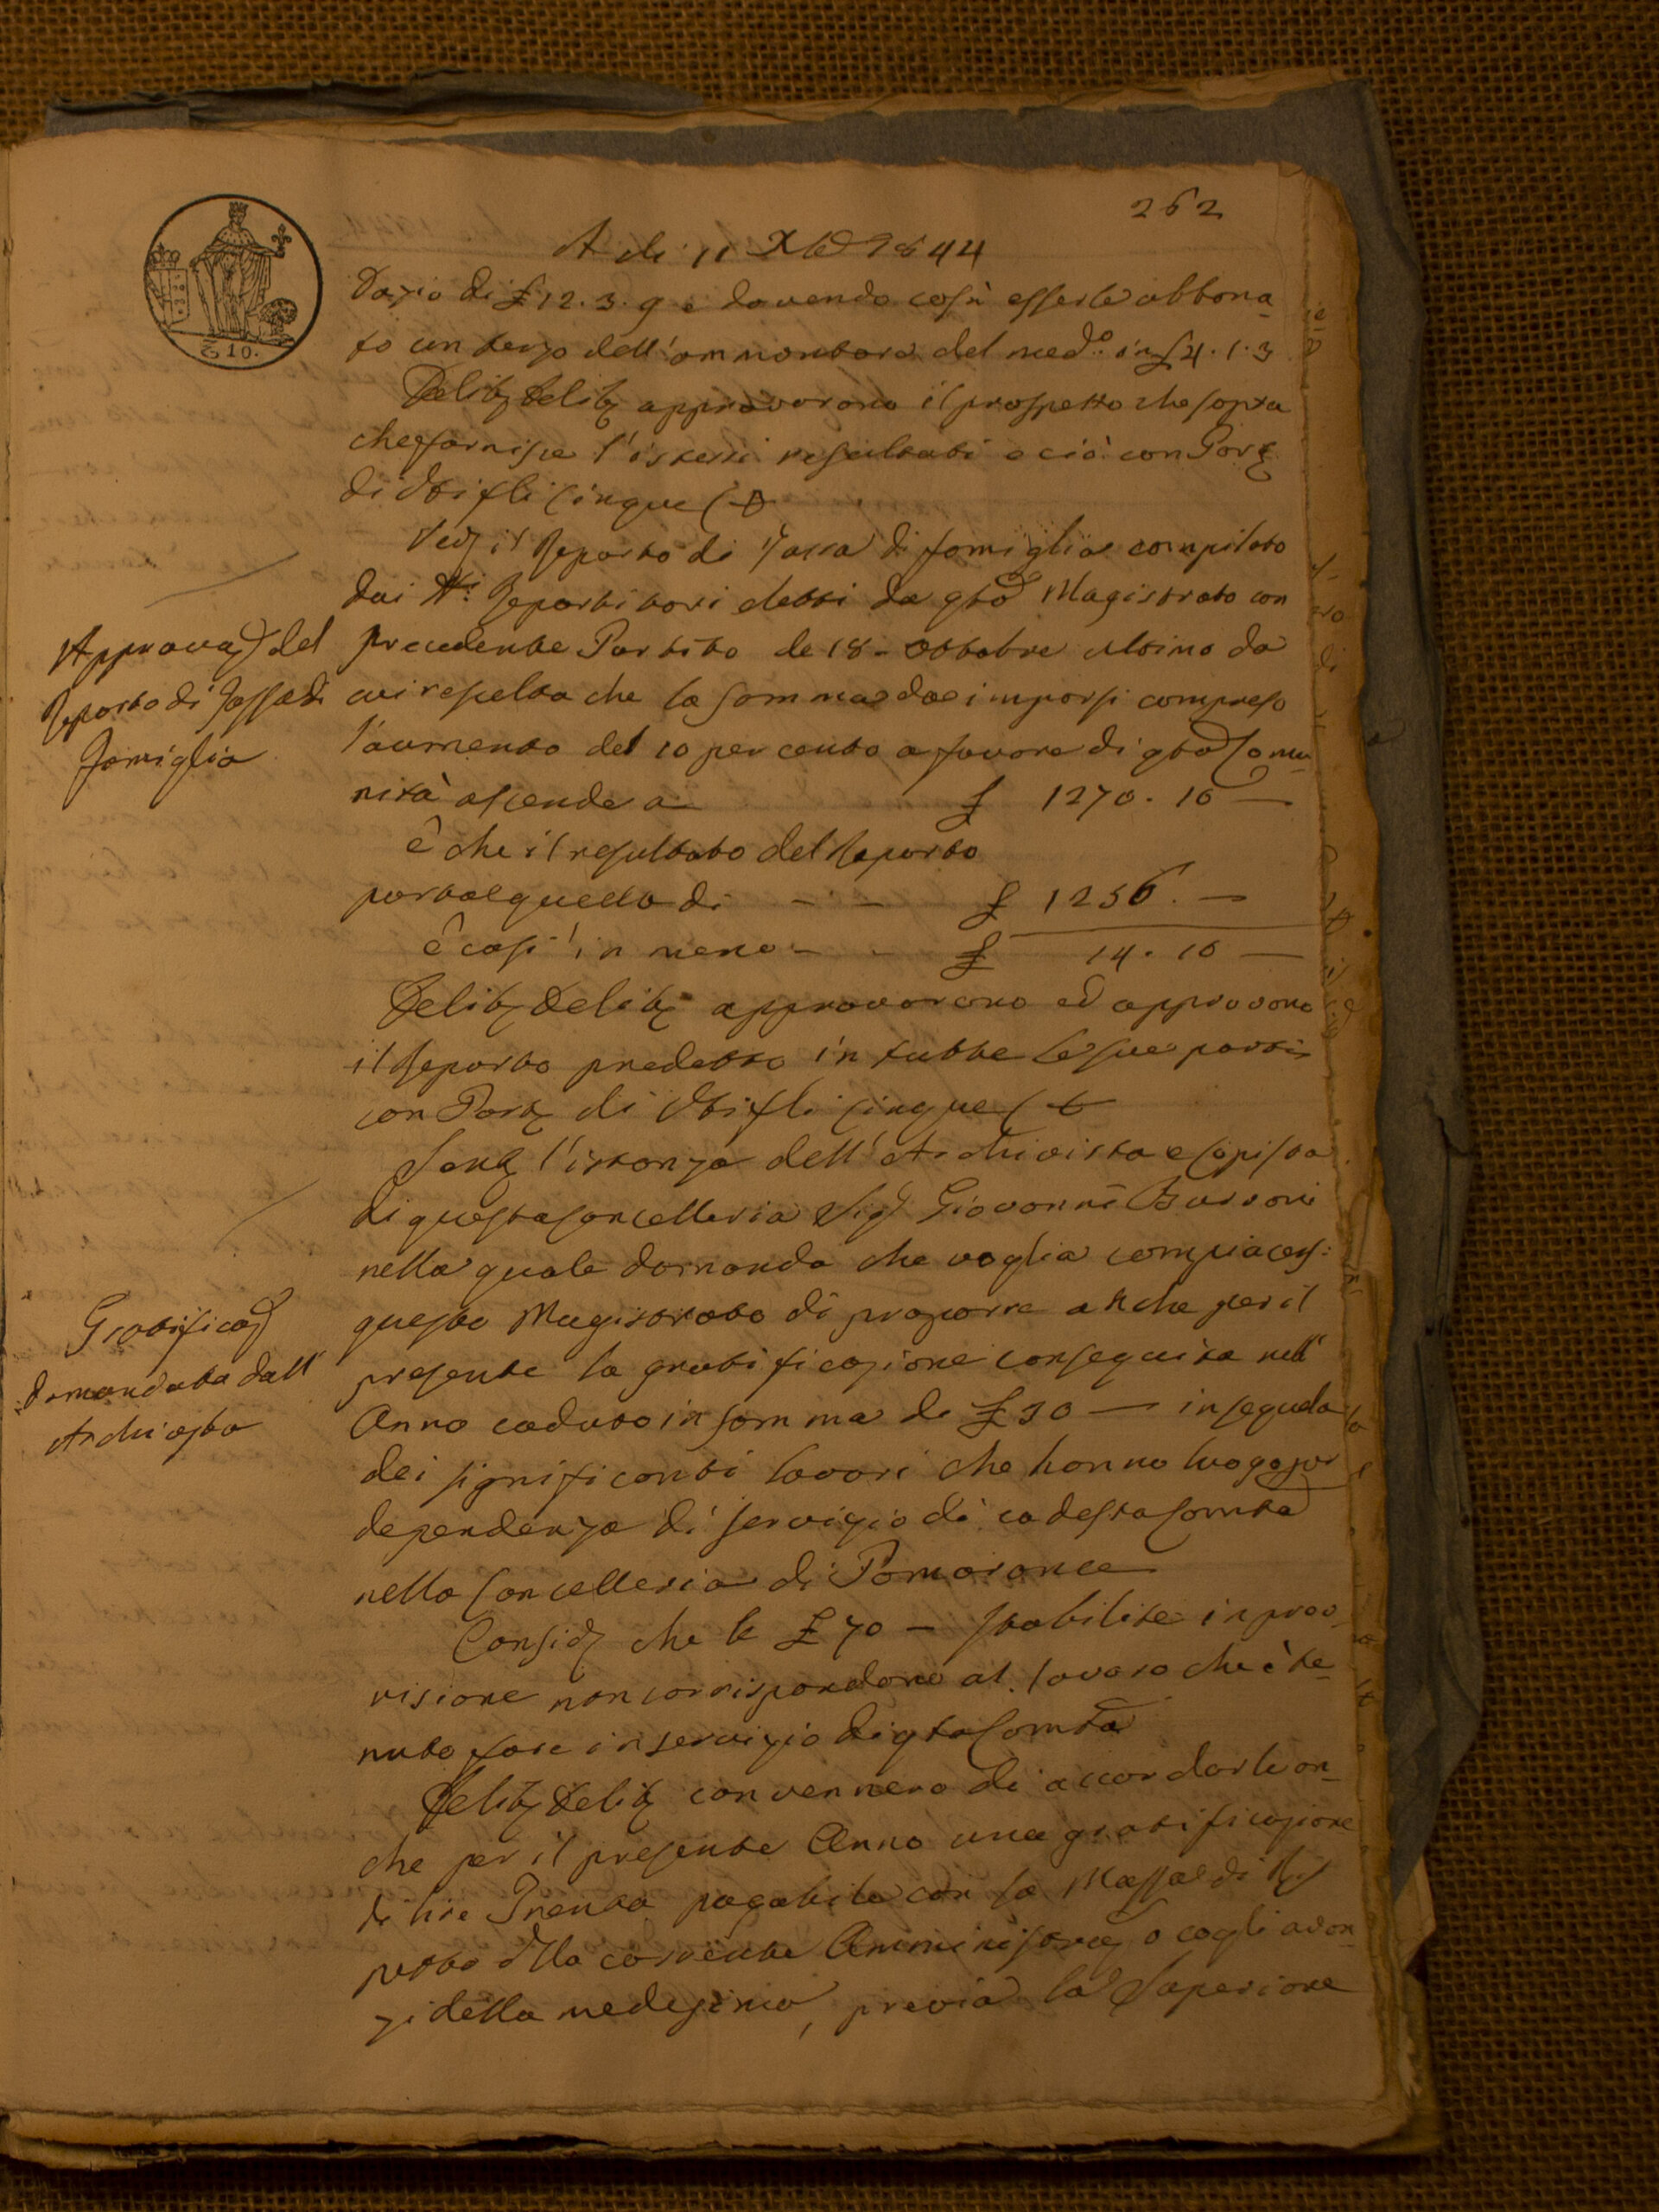 262
A di 11 Xbre 1844
Dazio di £ 12. 3. 9 e dovendo così esserle abbona-
to un terzo dell'ammontare del med.o in £ 4. 1. 3
Delib Delib approvarono il prospetto che sopra
che fornisce l'istessi resultati e ciò con Part
di Voti fli cinque (
Ved il Reparto di Tassa di famiglia compilato
dai Repartitori eletti da qto Magistrato con
precedente Partito de 18 - Ottobre ultimo da
cui resulta che la somma da imporsi compreso
l'aumento del 10 per cento a favore di qta Comu-
nità ascende a £ 1270. 10 —
E che il resultato del Reparto
porta quello di - - £ 1256. —
E così in meno - - £ 14. 10 —
Delib Delib approvarono ed approvano
il Reparto predetto in tutte le sue parti
con Part di Voti fli cinque (
Sent l'istanza dell'Archivista e Copista
di questa Cancelleria Sig Giovanni
nella quale domanda che voglia compiacersi
questo Magistrato di proporre anche per il
presente la gratificazione conseguita nell'
Anno caduto in somma di £ 30 — in sequela
dei significanti lavori che hanno luogo per
dependenza di servizio di codesta Comtà
nella Cancelleria di Pomarance
Consid che le £ 70 — stabilite in prov-
visione non corrispondono al lavoro che è te-
nuto fare in servizio di qta Comtà
Delib Delib convennero di accordarle an-
che per il presente Anno una gratificazione
di lire Trenta pagabile con la Massa di Ris
petto della corrente Amministraz o cogli avan-
zi della medesima, previa la Superiore
Approvaz del
Reparto di Tassa di
famiglia
Gratificaz
domandata dall'
Archivista
10.